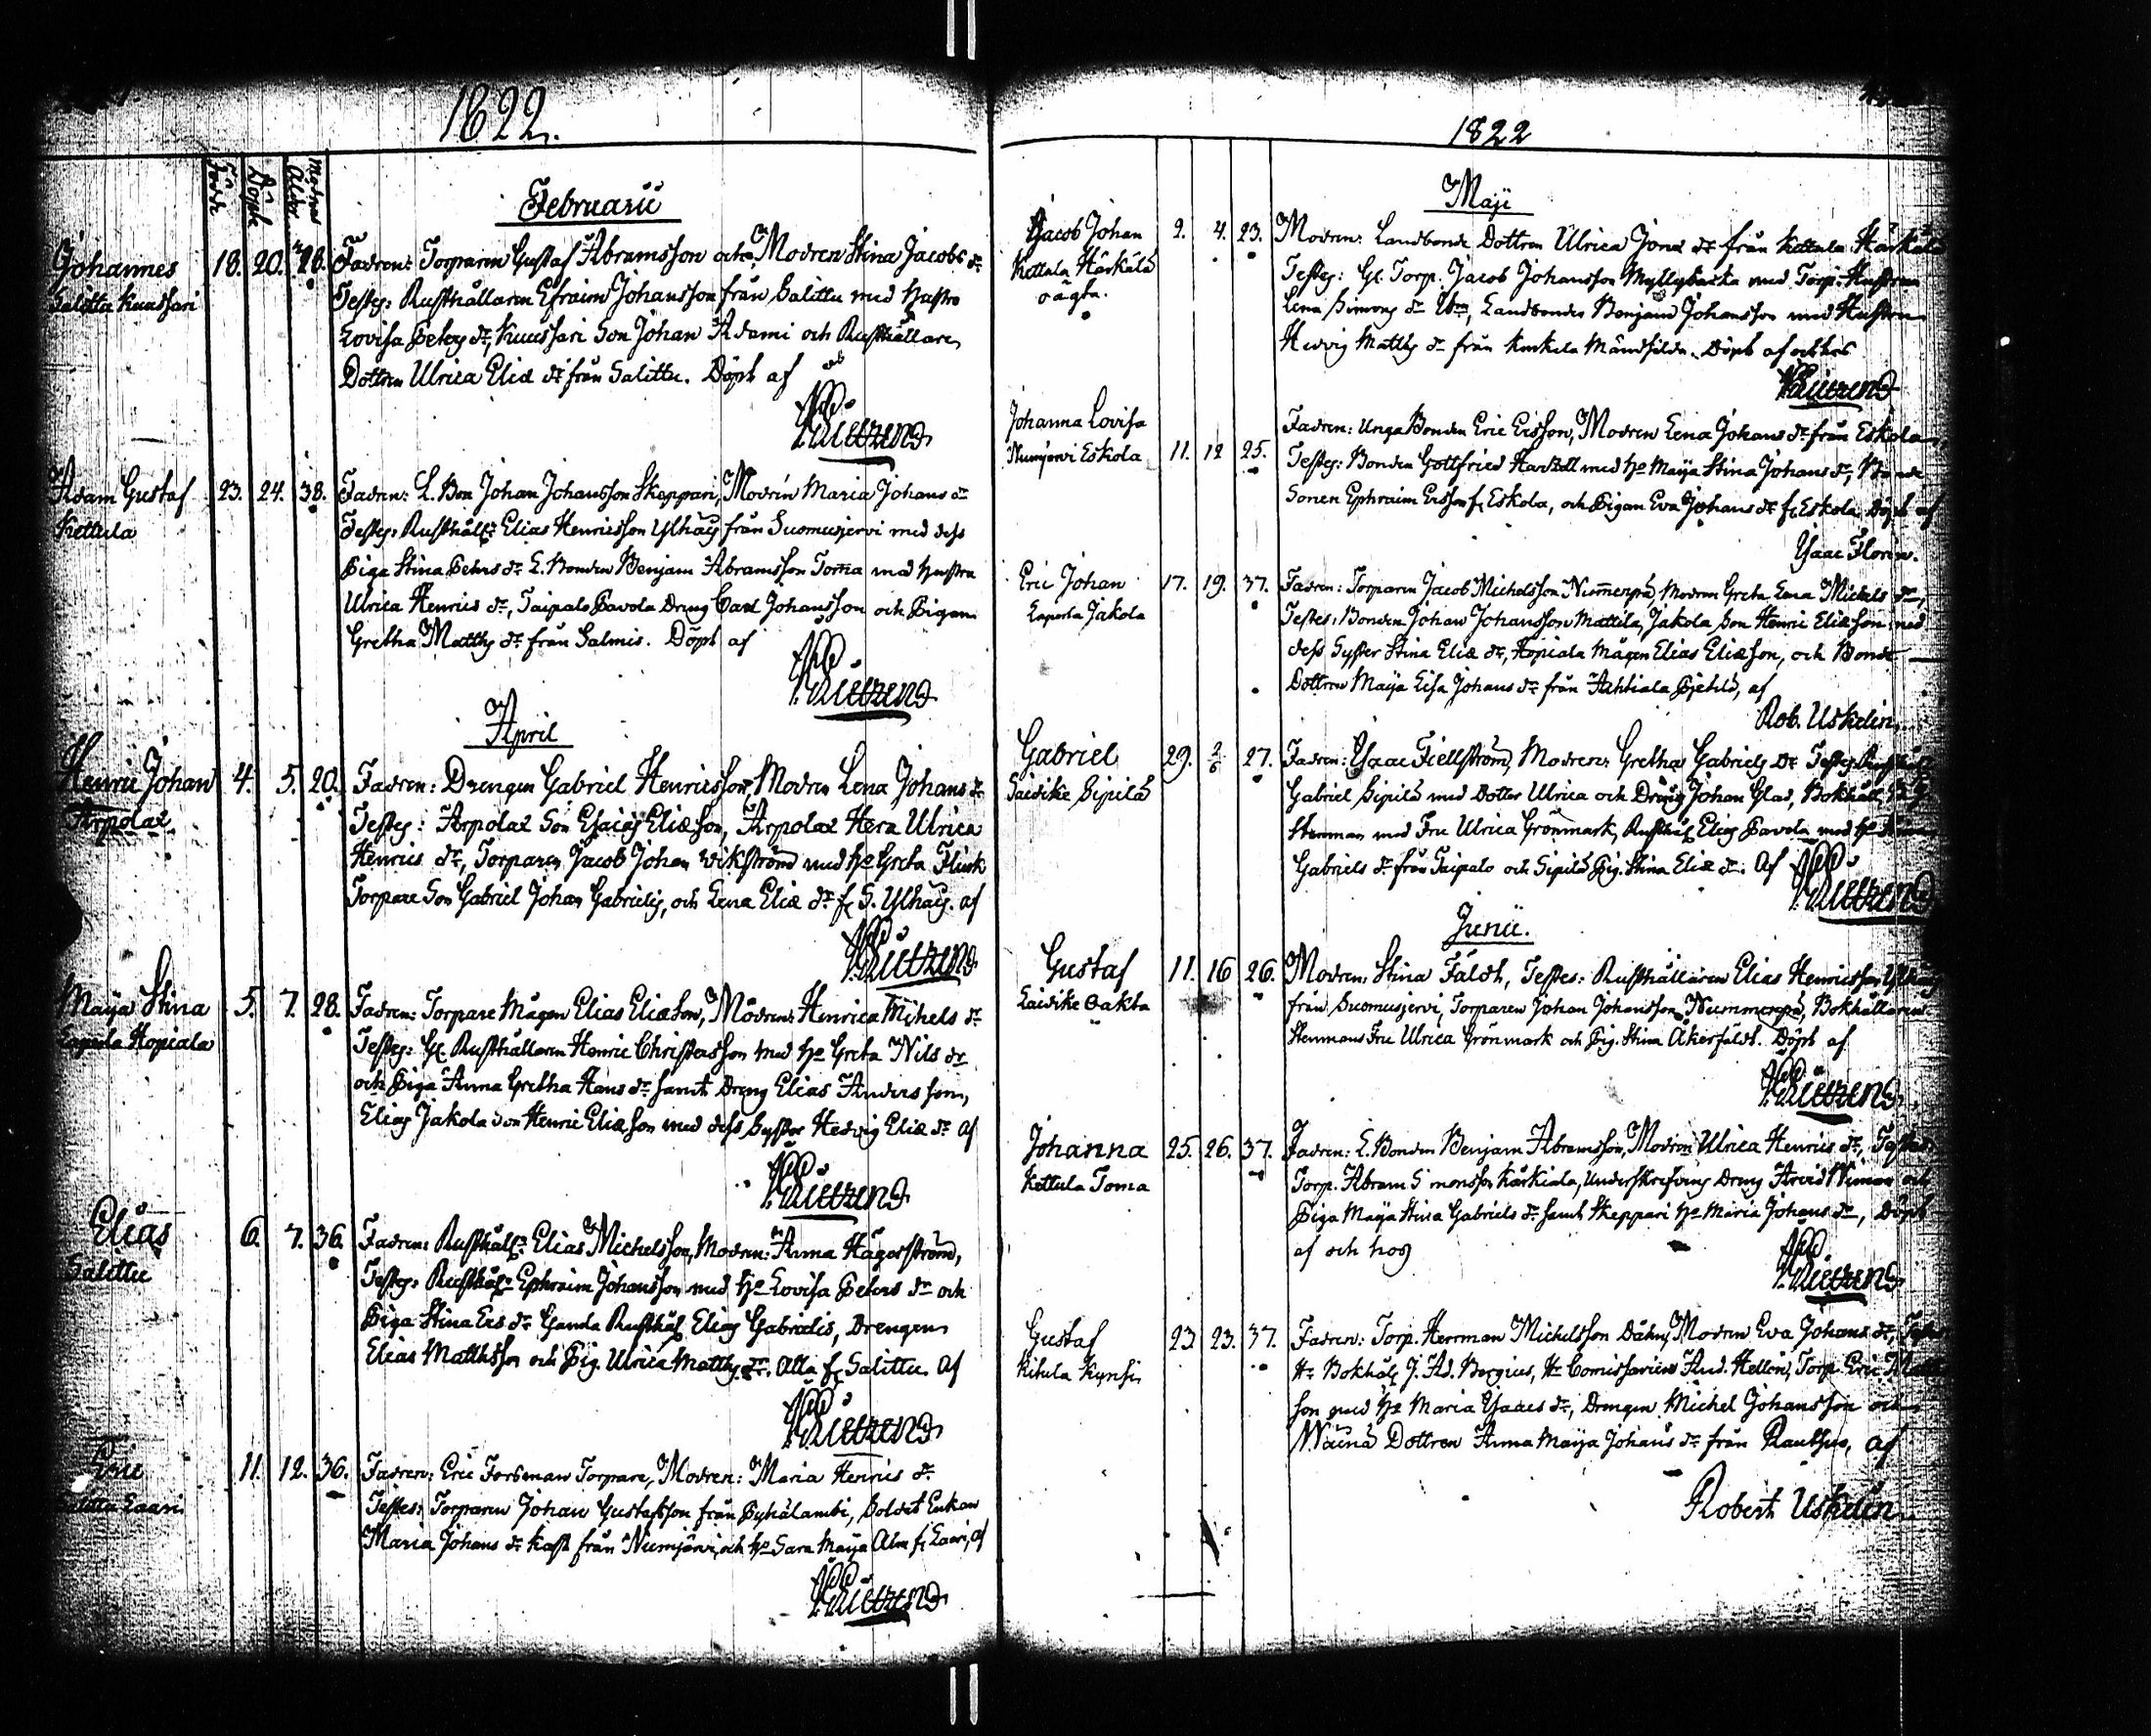 1822.
Född
Döpt
Modrens Ålder
Februarii
Johannes 18. 20. 28. Fadren: Torparen Gustaf Abramsson och Modren Stina Jacobs dr
Salittu Kuussari Testes: Rusthållaren Efraim Johansson från Salittu med hustro
Lovisa Peters dr, Kuussari Son Johan Adami och Rusthållare
Dottren Ulrica Eliæ dr från Salittu. Döpt af
Adam Gustaf 23. 24. 38. Fadren: L. Bon Johan Johansson Skeppari, Modren Maria Johans dr
Kettula Testes: Rusthåll: Elias Henricsson Ylhäis från Suomusjervi med dess
Piga Stina Peters dr L. Bonden Benjam Abramsson Toma med hustru
Ulrica Henrics dr, Taipale Pavola Dreng Carl Johansson och Pigan
Gretha Matths dr från Salmis. Döpt af
April
Henric Johan 4. 5. 20. Fadren: Drengen Gabriel Henricsson, Modren Lena Johans dr
Arpolax Testes: Arpolax Son Esaias Eliæson, Arpolax Hera Ulrica
Henrics dr, Torparen Jacob Johan Wikström med ho Greta Flink
Torpare Son Gabriel Johan Gabrielis, och Lena Eliæ dr fr S. Ylhäis. af
Maija Stina 5. 7. 28. Fadren: Torpare Mågen Elias Eliæson, Modren: Henrica Michels dr
Laperla Hopiala Testes: Gl. Rusthållaren Henric Christersson med ho Greta Nils dr
och Piga Anna Gretha Hans dr samt Dreng Elias Andersson,
Elias Jakola son Henric Eliæson med dess Syster Hedvig Eliæ dr af
Elias 6. 7. 36. Fadren: Rusthåll: Elias Michelsson, Modren: Anna Hägerström,
Salittu Testes: Rusthåll: Ephraim Johansson med ho Lovisa Peters dr och
Piga Stina Ers dr Ganda Rusthåll Elias Gabrielis, Drengen
Elias Matthsson och Pig. Ulrica Matths dr. Alla fr Salittu af
Eric 11. 12. 36. Fadren: Eric Forsman Torpare, Modren: Maria Henrics dr
Laari Testes: Torparen Johan Gustafsson från Pyhälambi, Soldat Enkan
Maria Johans dr Kast från Numjärvi, och ho Sara Maija Alm fr Laari, af
1822
Maji
Jacob Johan 2. 4. 23. Modren: Landbonde Dottren Ulrica Jonæ dr från Kettula Härkälä
Kettula Härkälä Testes: Gl. Torp. Jacob Johansson Myllybacka med Torp. Hustrun
oägta. Lena Simons dr Landbonden Benjam Johansson med Hustru
Hedvig Matths dr från Kurkela Döpt af och hos
Johanna Lovisa Fadren: Unga Bonden Eric Ersson, Modren Lena Johans dr från Eskola
Numjervi Eskola 11. 12 25. Testes: Bonden Gottfried Hartzell med ho Maija Stina Johans dr, Bonde
Sonen Ephraim Ersson fr Eskola, och Pigan Eva Johans dr fr Eskola, Döpt af
Isaac Florin.
Eric Johan 17. 19. 37. Fadren: Torparen Jacob Michelsson Nummenpä, Modren Greta Lena Michels dr,
Laperla Jakola Testes: Bonden Johan Johansson Mattila, Jakola Son Henric Eliæson med
dess Syster Stina Eliæ dr, Hopiala Mågen Elias Eliæson, och Bonde
Dottren Maija Lisa Johans dr från Ahtiala af
Rob. Uskelin.
Gabriel 29. 2/6 27. Fadren: Isaac Fiellström, Modren: Gretha Gabriels Dr Testes Rusthåll
Laidike Sipilä Gabriel Sipilä med Dotter Ulrica och Dräng Johan Glad, Bokhåll
Stenman med Fru Ulrica Grönmark, Rusthåll Elias Pavola med ho
Gabriels dr från Taipale och Sipilä Pig. Stina Eliæ dr. Af
Junii.
Gustaf 11. 16 26. Modren: Stina Fäldt, Testes: Rusthållaren Elias Henricsson Ylhäis
Laidike Oakta från Suomusjervi, Torparen Johan Johansson Nummenpä, Bokhållaren
Stenmans Fru Ulrica Grönmark och Pig. Stina Åkerfäldt. Döpt af
Johanna 25. 26. 37. Fadren: L. Bonden Benjam Abramsson, Modren Ulrica Henrics dr, Testes
Kettula Toma Torp. Abram Simonsson Kärkiala, Underskrifvens Dreng Arvid Niman och
Piga Maija Stina Gabriels dr samt Skeppari ho Maria Johans dr, Döpt
af och hos
Gustaf 23 23. 37. Fadren: Torp. Herman Michelsson Dähn, Modren Eva Johans dr,
Kitula Kynsi Hr Bokhåll J. Ad. Bergius, Hr Comissarien And. Hellen, Torp. Eric
son med ho Maria Isaacs dr, Drengen Michel Johansson och
Dottren Anna Maija Johans dr från Rautsuo, af
Robert Uskelin.